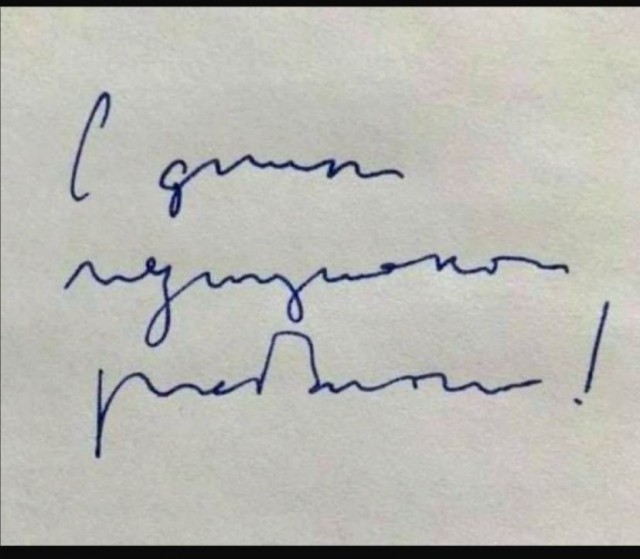 С днем
медицинского
работника!